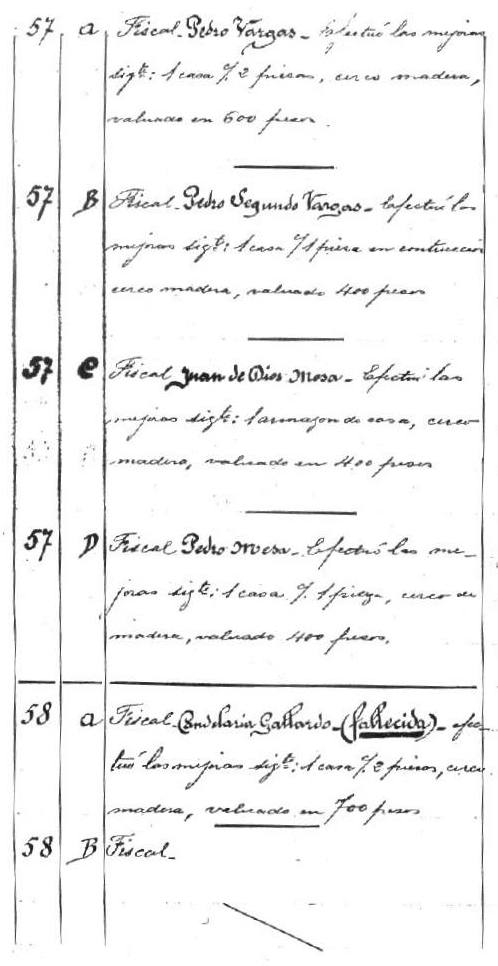 57 a Fiscal - Pedro Vargas - Efectuó las mejoras
sigte: 1 casa %. 2 piesas, cerco madera,
valuado en 600 pesos.
57 B Fiscal - Pedro Segundo Vargas - Efectuó las
mejoras sigte: 1 casa % 1 piesa en contruccion
cerco madera, valuado 400 pesos
57 C Fiscal Juan de Dios Mesa - Efectuó las
mejoras sigte: 1 armazon de casa, cerco
madera, valuado en 400 pesos
57 D Fiscal Pedro Mesa - Efectuó las me-
joras sigte: 1 casa %. 1 pieza, cerco de
madera, valuado 400 pesos.
58 a Fiscal - Candelaria Gallardo - (fallecida) - efec-
tuó las mejoras sigte: 1 casa %. 2 piesas, cerco
madera, valuado en 700 pesos
58 B Fiscal -